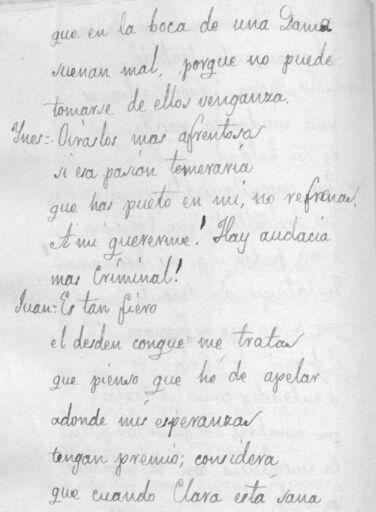 que en la boca de una Dama
suenan mal, porque no puede
tomarse de ellos venganza.
Ynes=Oiráslos mas afrentosas
si esa pasion temeraria
que has pueto en mi, no refrenas,
A mi quererme! Hay audacia
mas Criminal!
Juan=Es tan fiero
el desden conque me tratas
que pienso que hé de apelar
adonde mis esperanzas
tengan premio; considera
que cuando Clara está sana